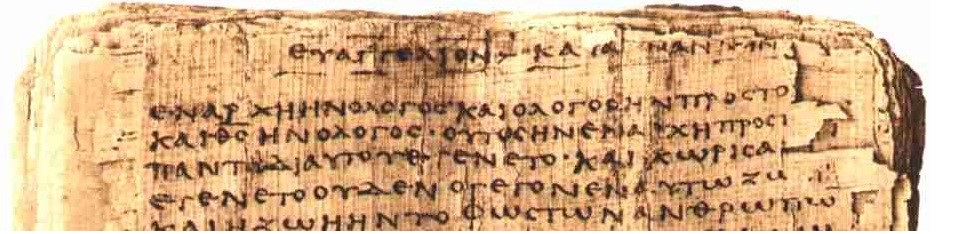 ΕΥΑΓΓΕΛΙΟΝ ΚΑΤΑ ΙΩΑΝΝΗΝ
ΕΝΑΡΧΗΗΝΟΛΟΓΟϹΚΑΙΟΛΟΓΟϹΗΝΠΡΟϹΤΟ
ΚΑΙΘϹΗΝΟΛΟΓΟϹ·ΟΥΤΟϹΗΝΕΝΑΡΧΗΠΡΟϹΤ
ΠΑΝΤΑΔΙΑΥΤΟΥΕΓΕΝΕΤΟ·ΚΑΙΧΩΡΙϹΑ
ΕΓΕΝΕΤΟΟΥΔΕΝΟΓΕΓΟΝΕΝΑΥΤΩΖΩ
ΚΑΙΗΖΩΗΗΝΤΟΦΩϹΤΩΝΑΝΘΡΩΠΩ